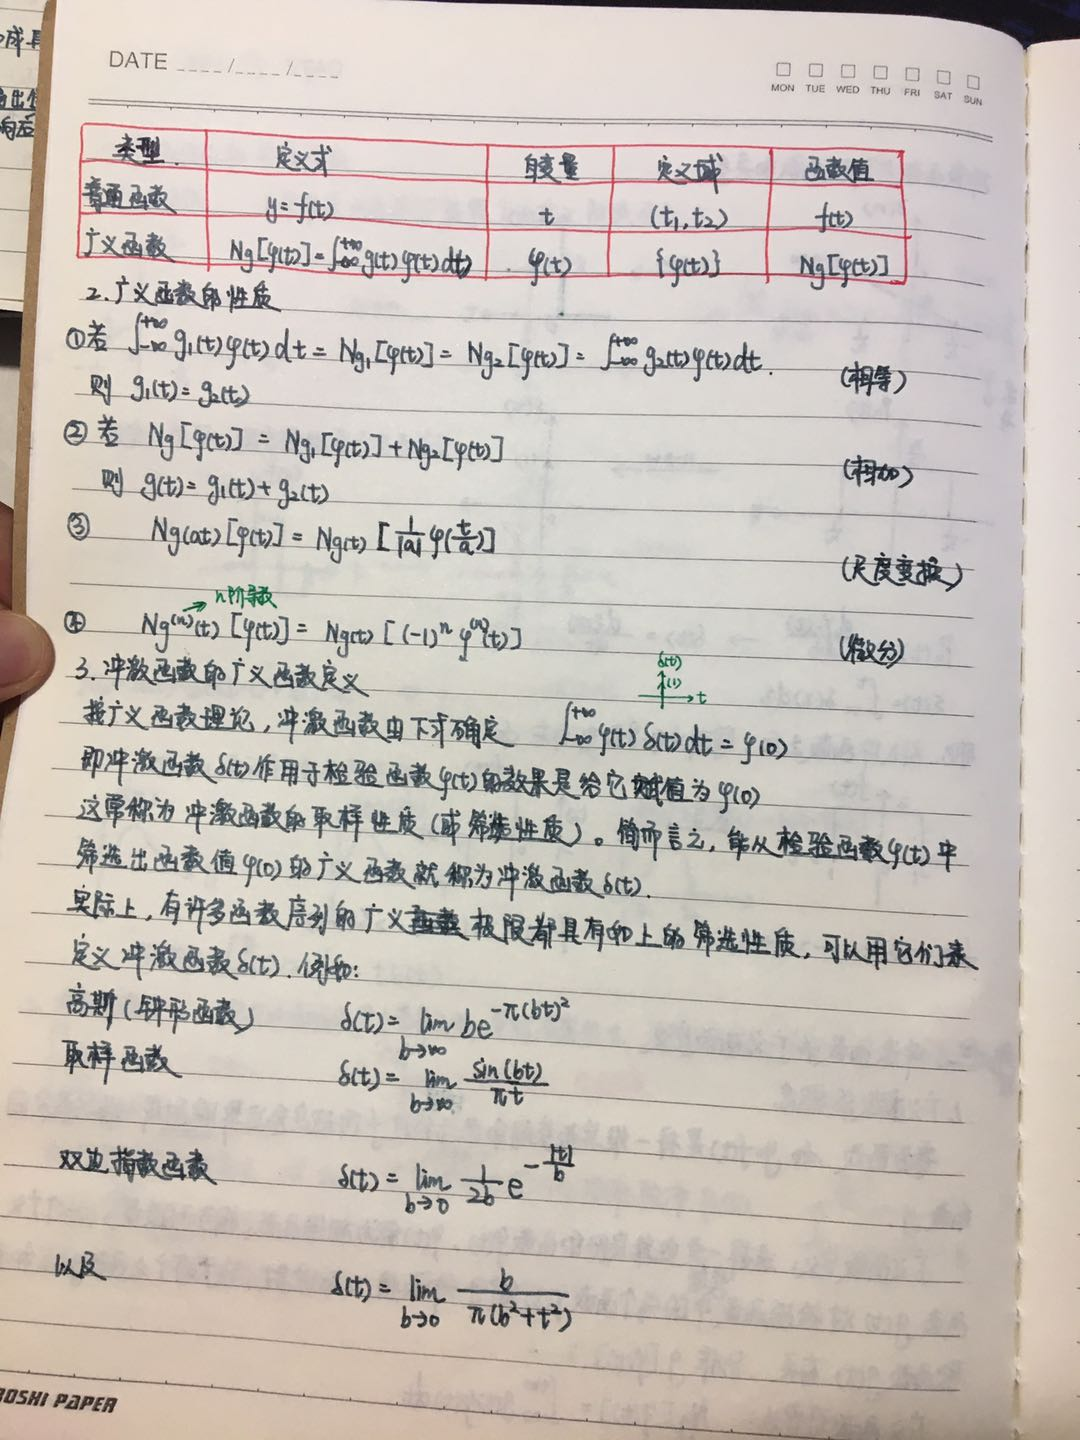 DATE ____/____/____
MON TUE WED THU FRI SAT SUN
类型 定义式 自变量 定义域 函数值
普通函数 y=f(t) t (t₁,t₂) f(t)
广义函数 Ng[φ(t)]=∫₋∞^{+∞}g(t)φ(t)dt φ(t) {φ(t)} Ng[φ(t)]
2.广义函数的性质
①若 ∫₋∞^{+∞}g₁(t)φ(t)dt=Ng₁[φ(t)]=Ng₂[φ(t)]=∫₋∞^{+∞}g₂(t)φ(t)dt. (相等)
则 g₁(t)=g₂(t)
②若 Ng[φ(t)]=Ng₁[φ(t)]+Ng₂[φ(t)] (相加)
则 g(t)=g₁(t)+g₂(t)
③ Ng(at)[φ(t)]=Ng(t)[1/|a| φ(t/a)] (尺度变换)
n阶导数
④ Ng⁽ⁿ⁾(t)[φ(t)]=Ng(t)[(-1)ⁿφ⁽ⁿ⁾(t)] (微分)
3.冲激函数的广义函数定义
δ(t) (1) t
按广义函数理论，冲激函数由下式确定 ∫₋∞^{+∞}φ(t)δ(t)dt=φ(0)
即冲激函数δ(t)作用于检验函数φ(t)的效果是给它赋值为φ(0)
这常称为冲激函数的取样性质(或筛选性质)。简而言之，能从检验函数φ(t)中
筛选出函数值φ(0)的广义函数就称为冲激函数δ(t).
实际上，有许多函数序列的广义极限都具有如上的筛选性质，可以用它们来
定义冲激函数δ(t).例如:
高斯(钟形函数) δ(t)=lim_{b→∞} be^{-π(bt)²}
取样函数 δ(t)=lim_{b→∞} sin(bt)/πt
双边指数函数 δ(t)=lim_{b→0} 1/2b e^{-|t|/b}
以及 δ(t)=lim_{b→0} b/π(b²+t²)
OSHI PAPER